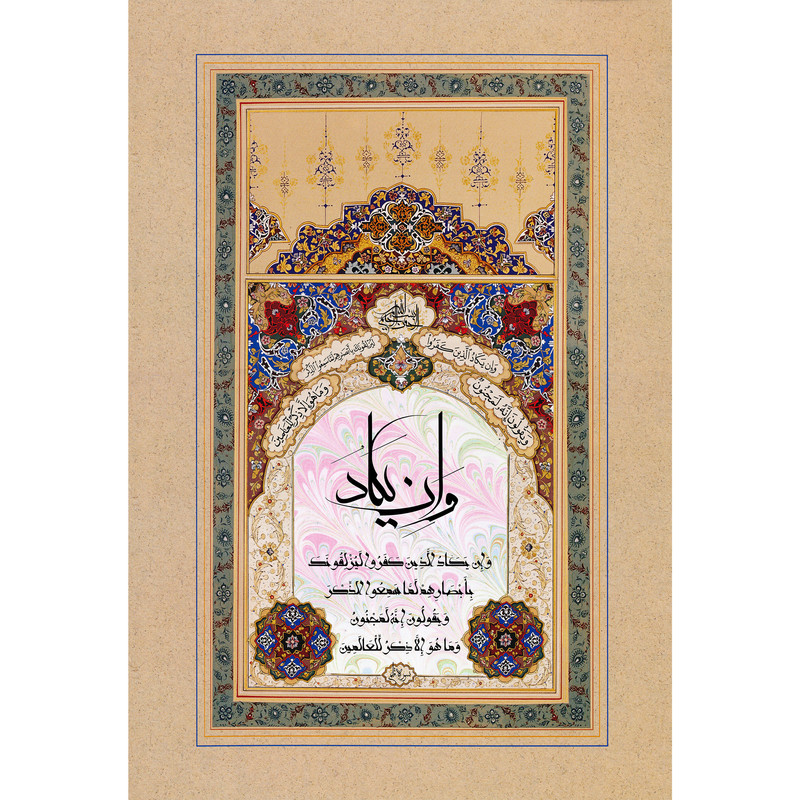 بسم الله الرحمن الرحيم
وَإِن يَكَادُ الَّذِينَ كَفَرُوا
لَيُزْلِقُونَكَ بِأَبْصَارِهِمْ لَمَّا سَمِعُوا الذِّكْرَ
وَيَقُولُونَ إِنَّهُ لَمَجْنُونٌ
وَمَا هُوَ إِلَّا ذِكْرٌ لِّلْعَالَمِينَ
وَإِن يَكَادُ
وَإِن يَكَادُ الَّذِينَ كَفَرُوا لَيُزْلِقُونَكَ
بِأَبْصَارِهِمْ لَمَّا سَمِعُوا الذِّكْرَ
وَيَقُولُونَ إِنَّهُ لَمَجْنُونٌ
وَمَا هُوَ إِلَّا ذِكْرٌ لِّلْعَالَمِينَ